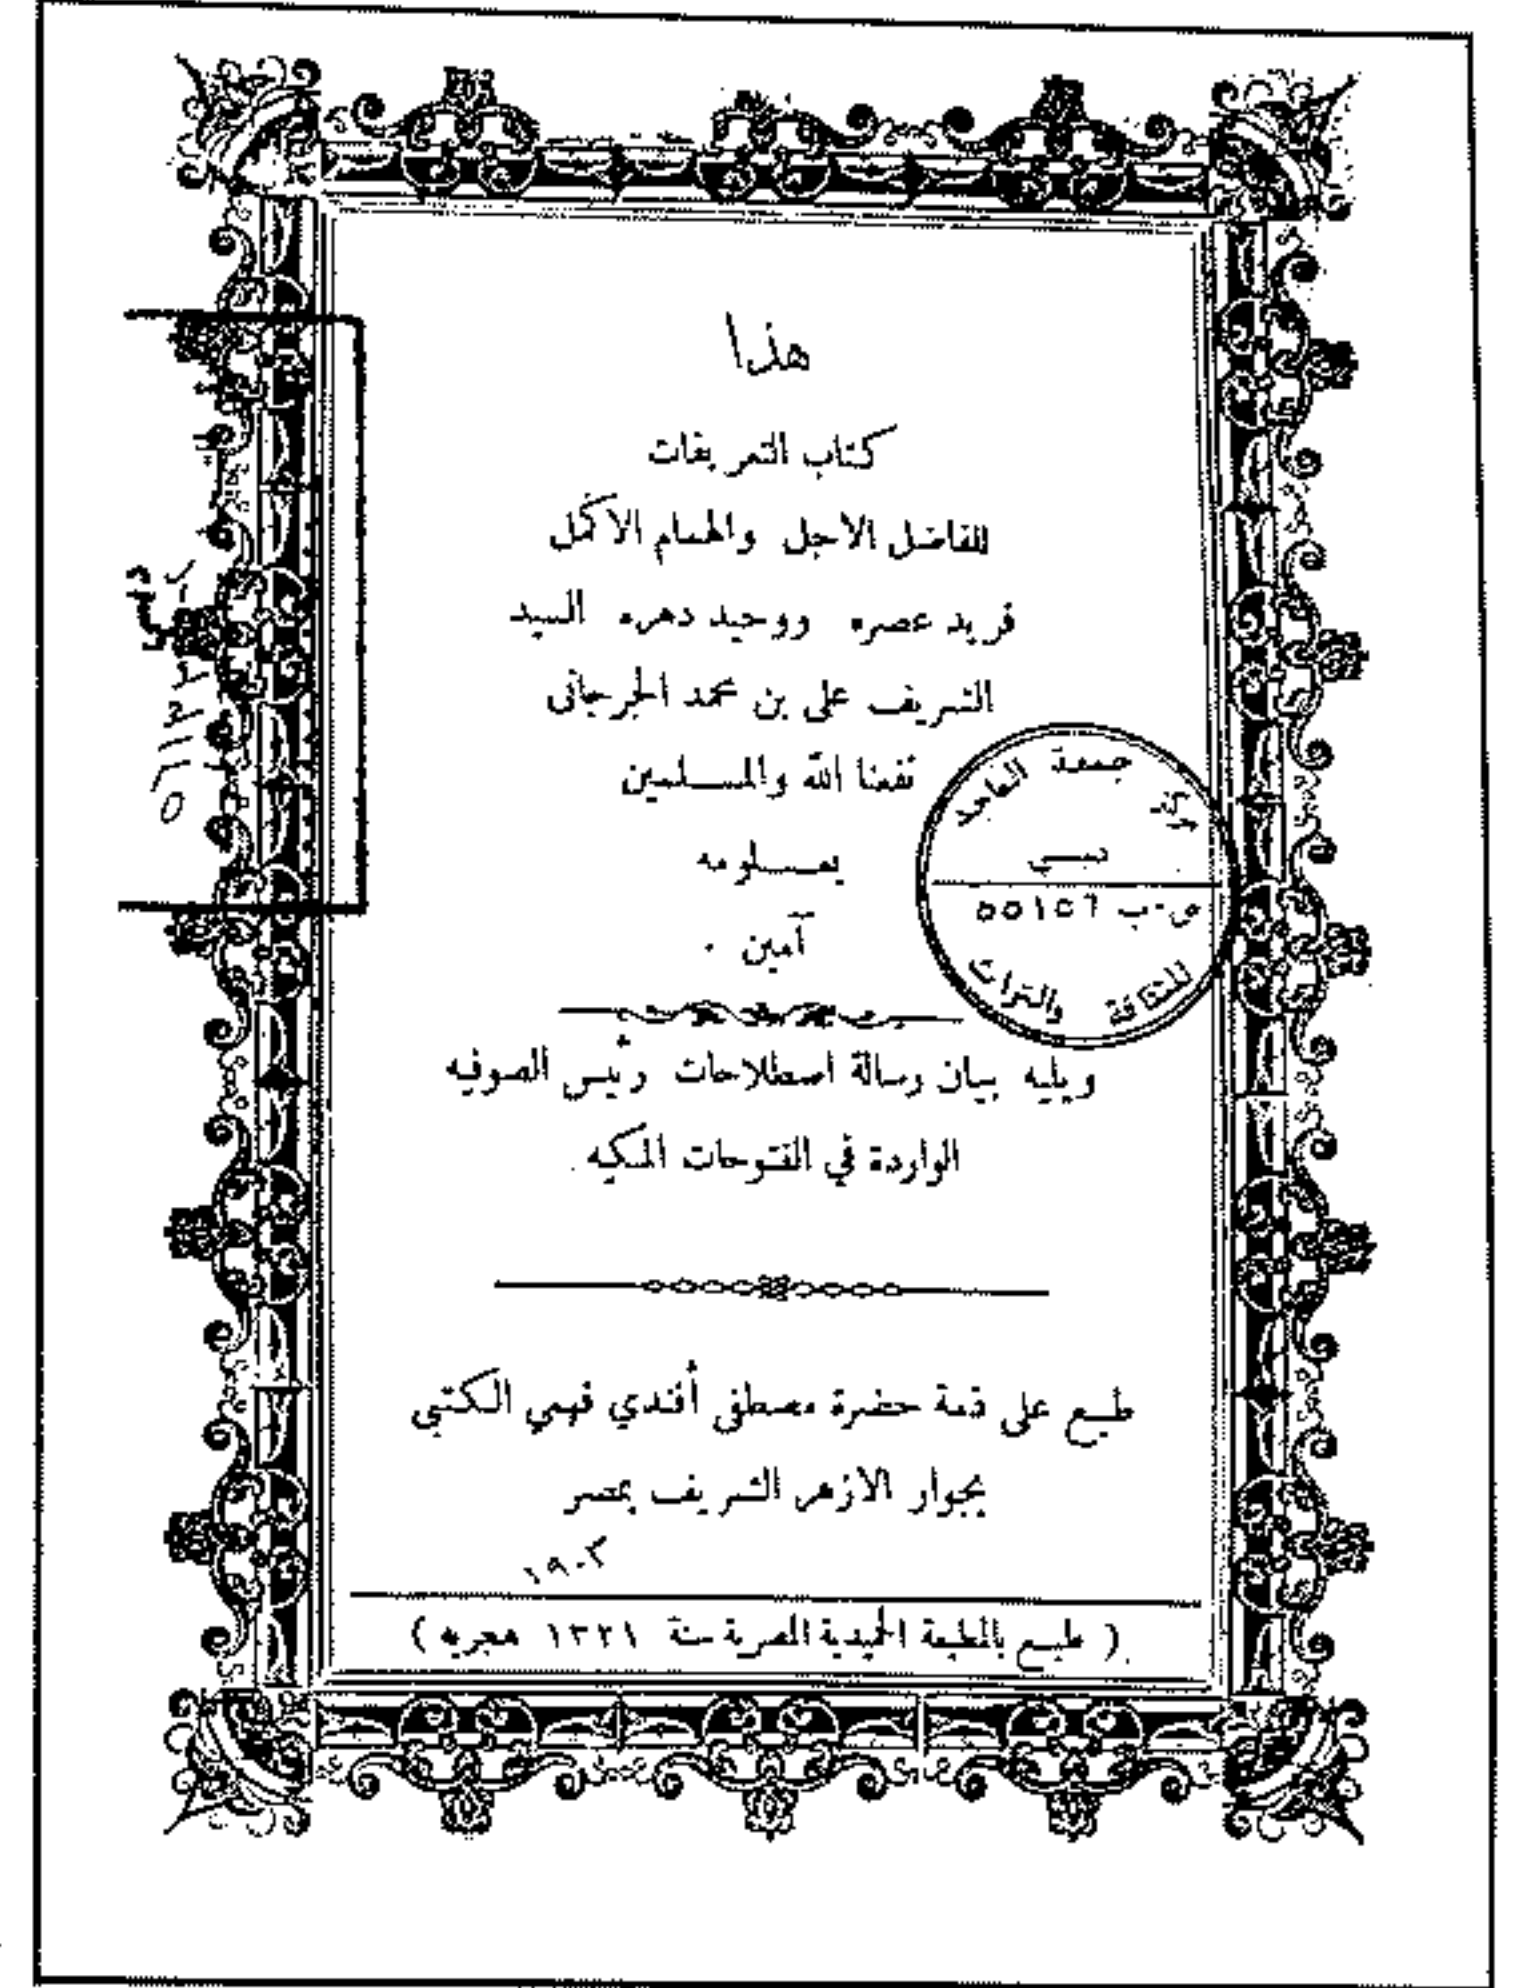 هذا
كتاب التعريفات
للفاضل الاجل والهمام الاكمل
فريد عصره ووحيد دهره السيد
الشريف على بن محمد الجرجانى
نفعنا الله والمسلمين
بعلومه
آمين .
ويليه بيان رسالة اصطلاحات رئيس الصوفيه
الواردة في الفتوحات المكيه
طبع على ذمة حضرة مصطفى أفندي فهمي الكتبي
بجوار الازهر الشريف بمصر
١٩٠٣
( طبع بالمطبعة الحميدية المصرية سنة ١٣٢١ هجريه )
جمعة الماجد
مركز
دبي
ص.ب ٥٥١٥٦
للثقافة والتراث